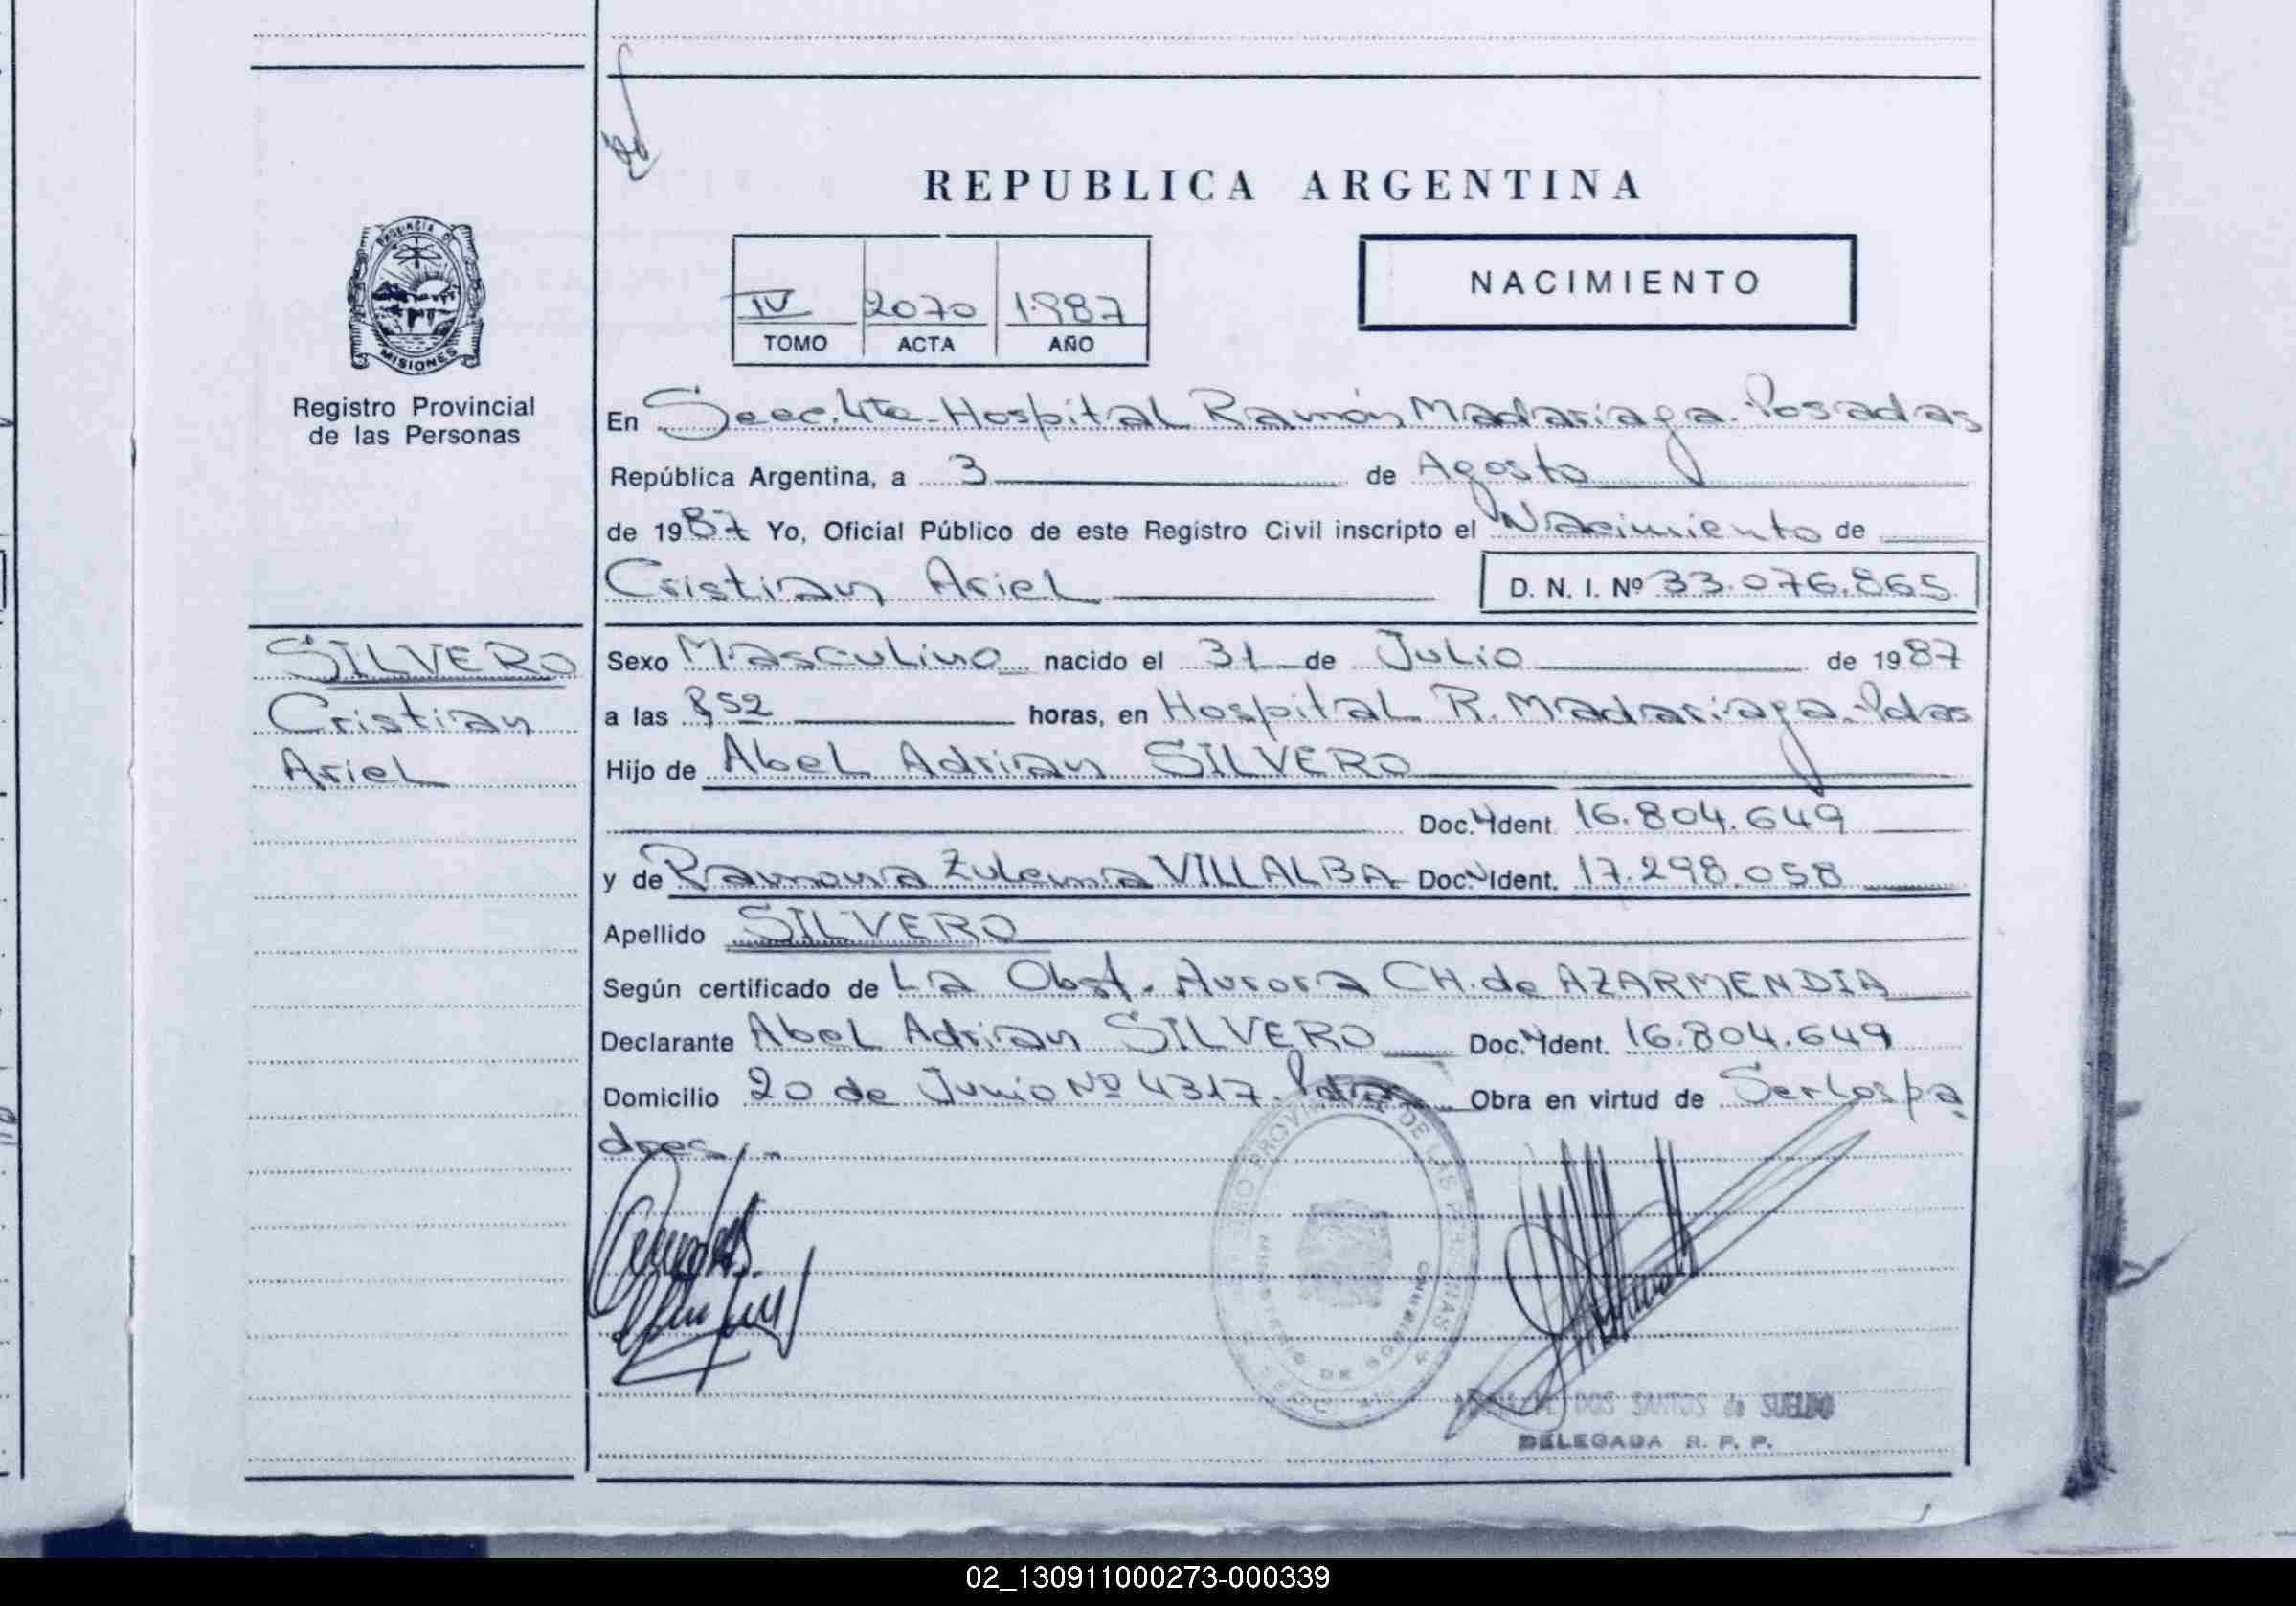 REPUBLICA ARGENTINA
PROVINCIA DE
MISIONES
Registro Provincial
de las Personas
IV 2070 1987
TOMO ACTA AÑO
NACIMIENTO
En Secc. 4ta- Hospital Ramón Madariaga. Posadas
República Argentina, a 3 de Agosto
de 1987 Yo, Oficial Público de este Registro Civil inscripto el Nacimiento de
Cristian Ariel D. N. I. Nº 33.076.865
SILVERO
Cristian
Ariel
Sexo Masculino nacido el 31 de Julio de 1987
a las 8,52 horas, en Hospital R. Madariaga. Pdas
Hijo de Abel Adrian SILVERO
Doc. Ident. 16.804.649
y de Ramona Zulema VILLALBA Doc. Ident. 17.298.058
Apellido SILVERO
Según certificado de La Obst. Aurora CH. de AZARMENDIA
Declarante Abel Adrian SILVERO Doc. Ident. 16.804.649
Domicilio 20 de Junio Nº 4317. Pdas Obra en virtud de Ser los pa
dres.-
DE LAS PERSONAS
DOS SANTOS de SUELDO
DELEGADA R. P. P.
02_130911000273-000339